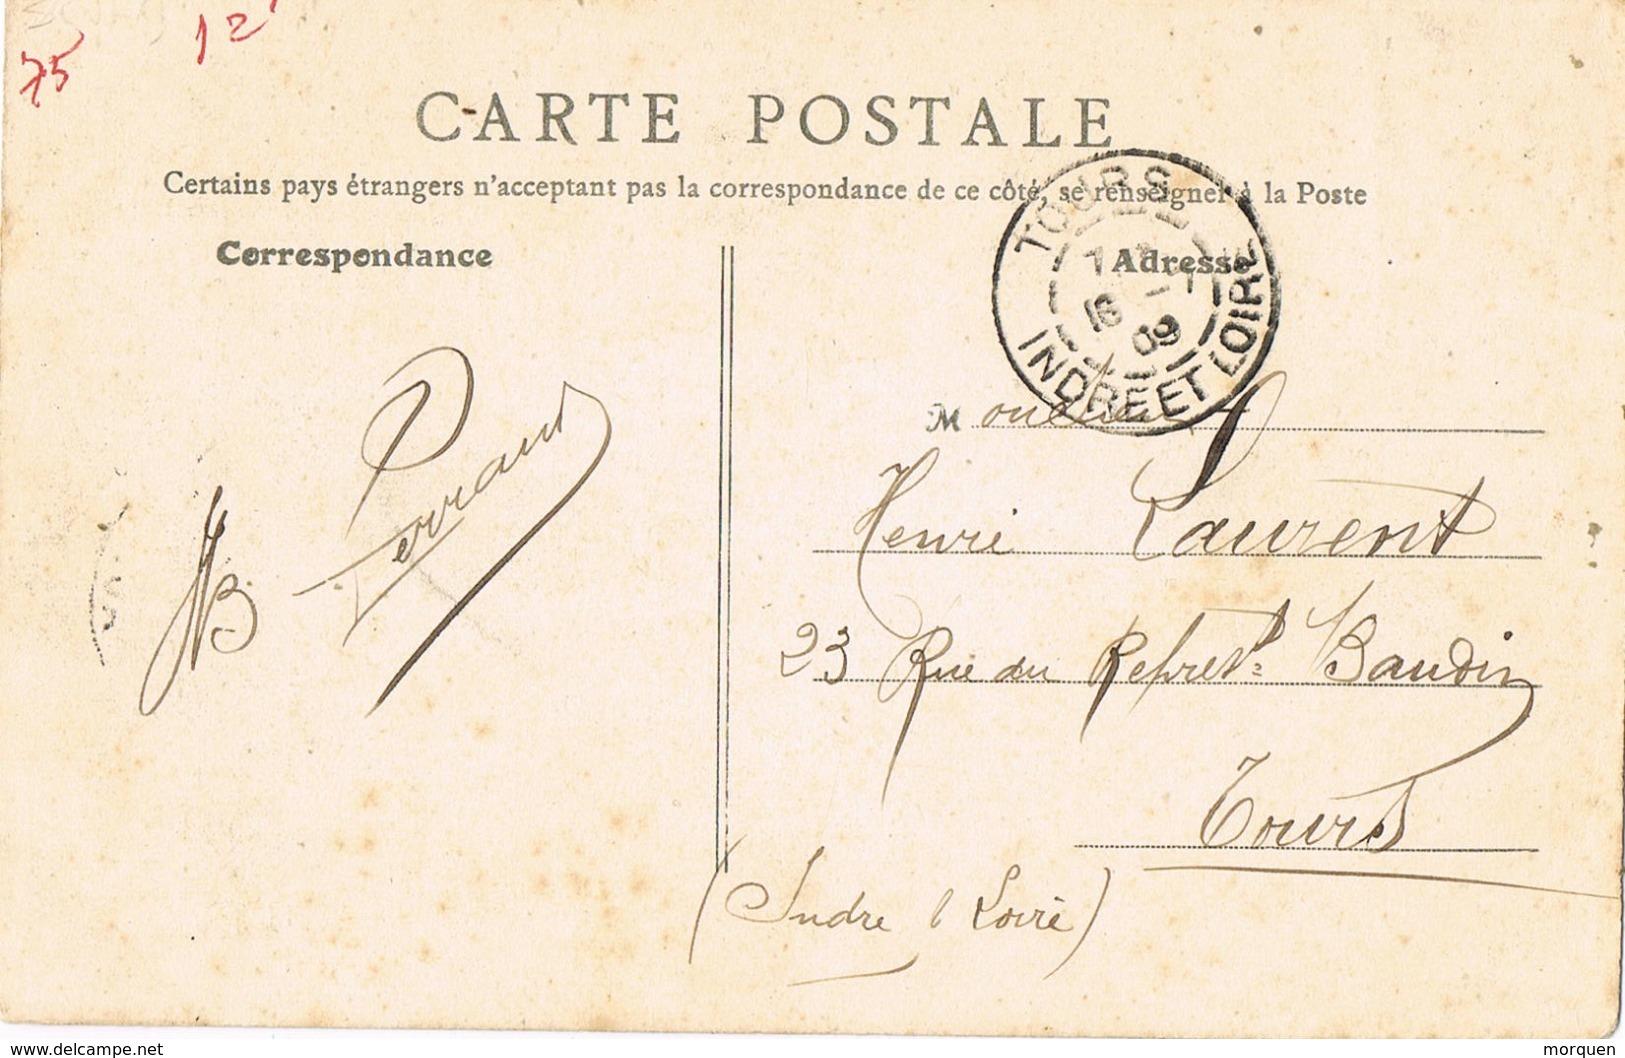 75
12
CARTE POSTALE
Certains pays étrangers n'acceptant pas la correspondance de ce côté, se renseigner à la Poste
Correspondance
Adresse
TOURS
16 09
INDRE ET LOIRE
Monsieur
Henri Laurent
23 Rue du Represt Baudin
Tours
(Indre & Loire)
Perrault
www.delcampe.net
morquen